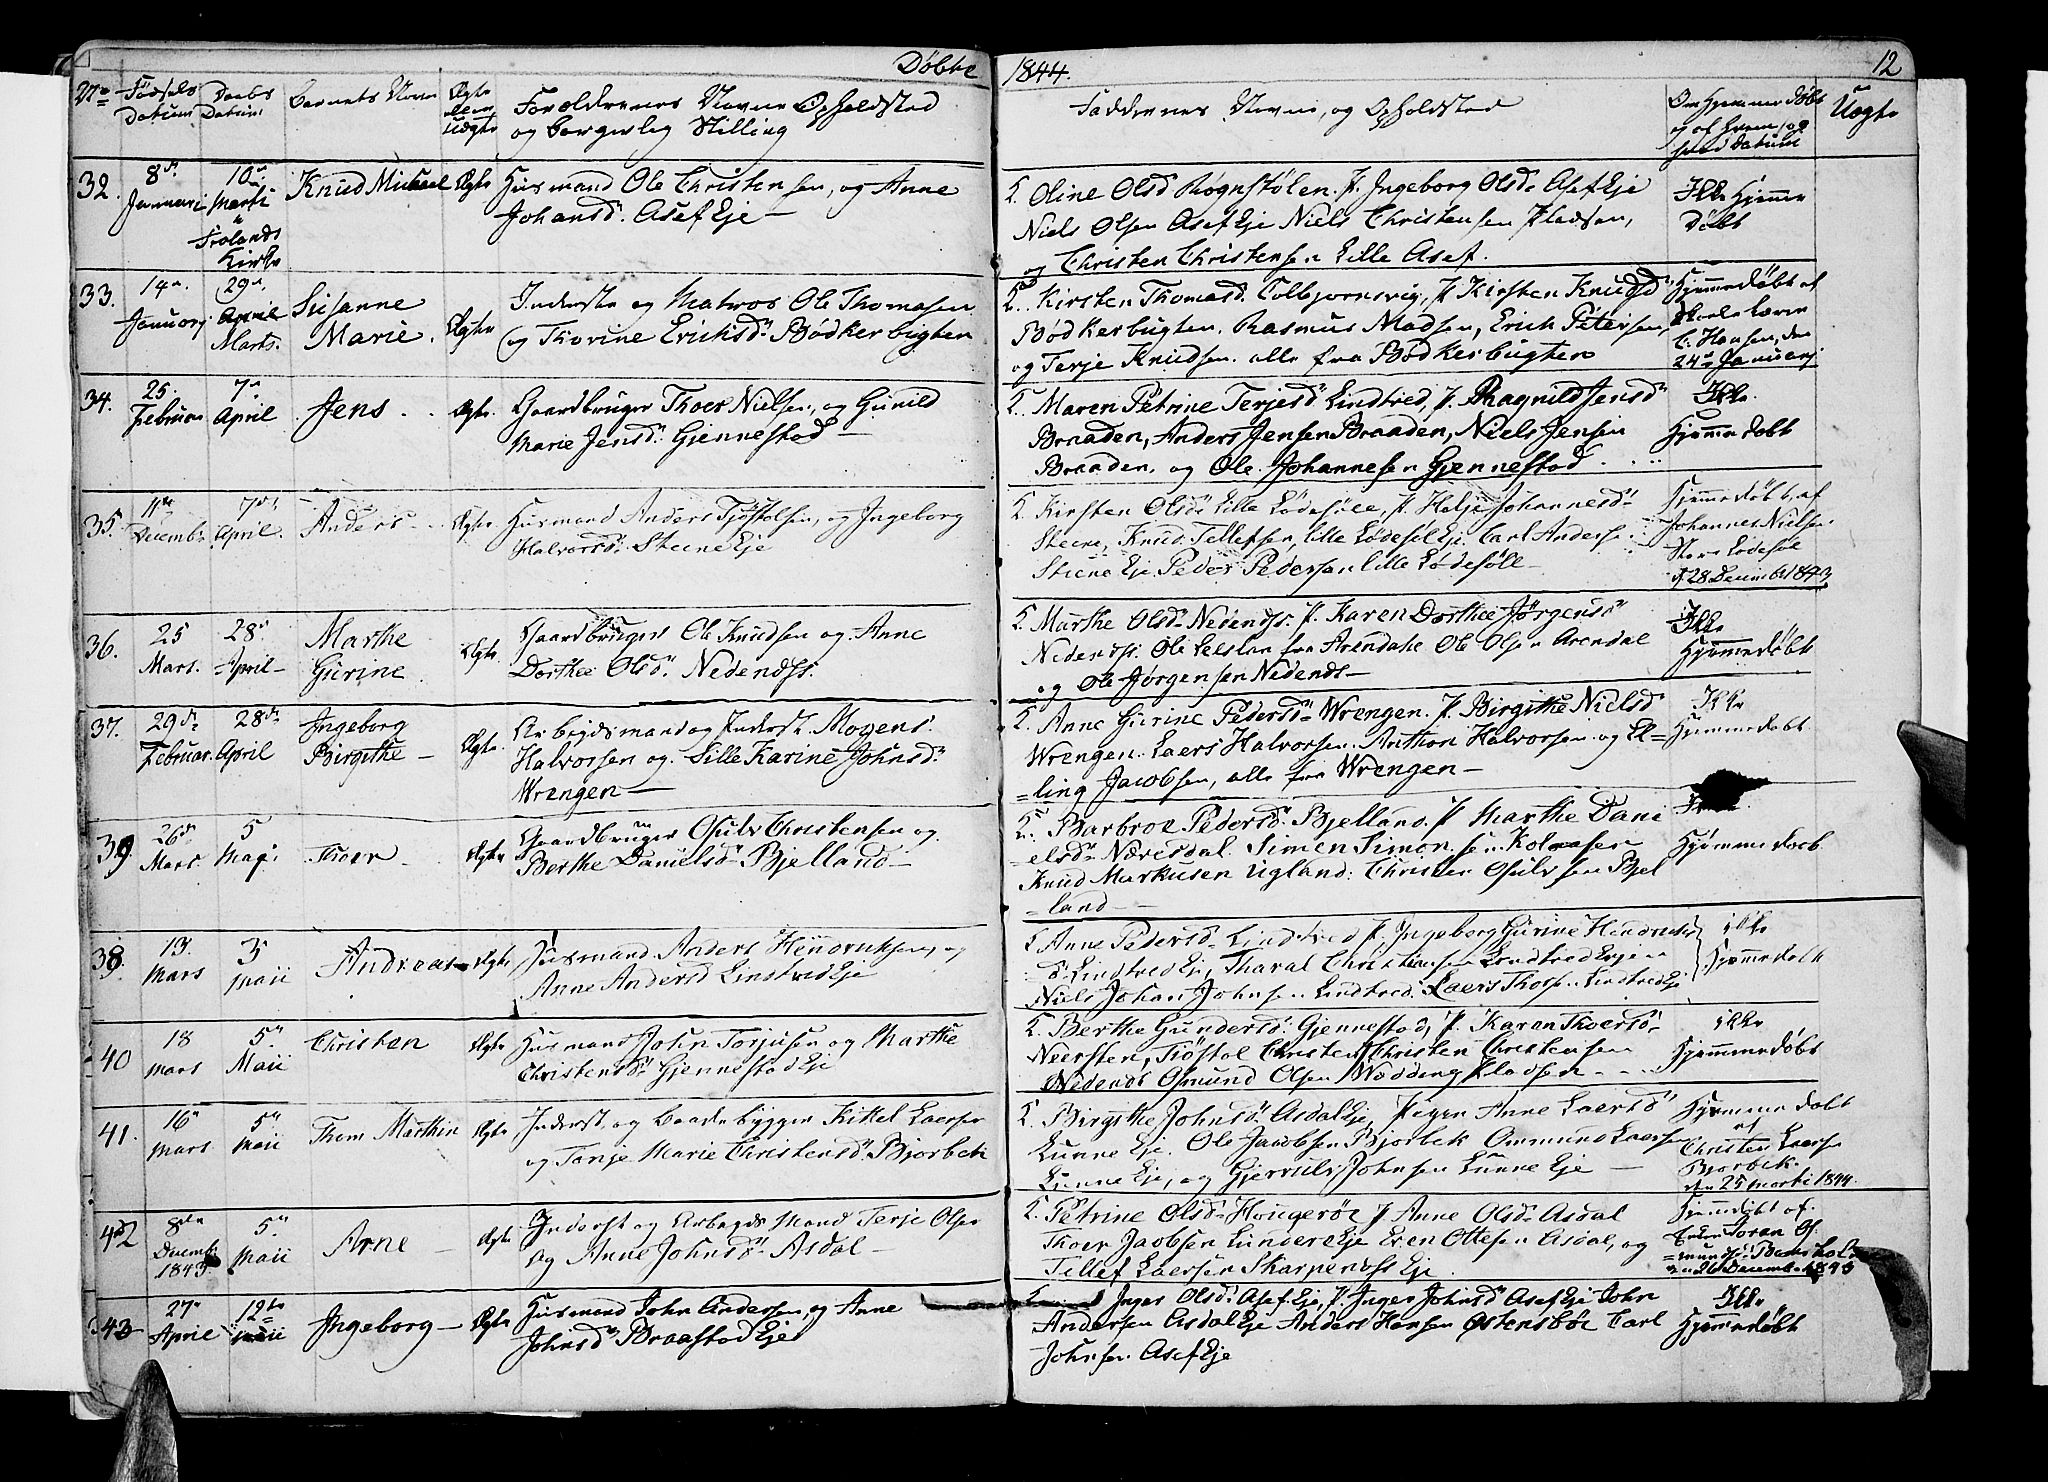 Døbte
1844.
12
No
Fødsels Datum
Daabs Datum
Barnets Navn
Ægte eller Uægte
Forældrenes Navne Opholdsted
og borgerlig Stilling
Faddernes Navne, og Opholdsted
Om Hjemmedøbt
og af hvem, og
hvad Datum
Uægte
32.
8de Januari
10de Marti i Frolands Kirke
Knud Michael
Ægte
Husmand Ole Christensen, og Anne
Johansd. Asef Eje —
Oline Olsd Røgnstølen. P. Ingeborg Olsd. Asef Eje
Niels Olsen Asef Eje Niels Christensen Pladsen,
og Christen Christensen Lille Asef.
Ikke Hjemme
Døbt
33.
14de Januarj
29de April Marts.
Susanne
Marie.
Ægte
Inderste og Matros Ole Thomasen
og Thorine Erichsd. Bødkerbugten
Kirsten Thomasd. Colbjørnsvig, P. Kirsten Knudsd
Bødkerbugten. Rasmus Madsen, Erich Petersen,
og Terje Knudsen. alle fra Bødkerbugten
Hjemmedøbt af
Skolelærer
C. Hansen, den
24de Januarj
34.
25 Februar
7de April
Jens
Ægte.
Gaardbruger Thoer Nielsen, og Gunild
Marie Jensd. Gjennestad —
Maren Petrine Terjesd Lindtved, P. Ragnild Jensd
Braaden, Anders Jensen Braaden, Niels Jensen
Braaden. og Ole Johannesen Gjennestad
Ikke
Hjemmedøbt
35.
11te Decembr
7de April
Anders
Ægte
Husmand Anders Tjøstolsen, og Ingeborg
Halvorsd. Steene Eje
Kirsten Olsd. Lille Lødesøle, P. Helje Johannesd.
Steene, Knud Tellefsen, lille Lødesøl Eje. Carl Anderse
Steene Eje Peder Pedersen lille Lødesøle —
Hjemmedøbt af
Johannes Nielsen
Store Lødesøl
d. 28 Decemb 1843
36.
25 Mars.
28de April
Marthe
Gurine
Ægte
Gaardbruger Ole Knudsen og Anne
Dorthee Olsd. Nedends.
Marthe Olsd. Nedends. P. Karen Dorthee Jørgensd
Nedends. Ole fra Arendale Ole Olsen Arendal
og Ole Jørgensen Nedends —
Ikke
Hjemmedøbt
37.
29de Februar
28de April
Ingeborg
Birgithe —
Ægte.
Arbejdsmand og Inderst Mogens
Halvorsen og Sille Karine Johnsd.
Wrengen —
Anne Gurine Pedersd. Wrengen. P. Birgithe Nielsd
Wrengen. Laers Halvorsen. Anthon Halvorsen. og El=
=ling Jacobsen, alle fra Wrengen —
Ikke
Hjemmedøbt
39
26de Mars.
5 Maj.
Thoer —
Ægte
Gaardbruger Osuld Christensen og
Berthe Danielsd. Bjelland —
Barbroe Pedersd. Bjelland. P. Marthe Dani
=elsd. Næresdal. Simen Simonsen Kolaasen
Knud Markusen Ugland: Christen Osuldsen Bjel
=land —
Ikke
Hjemmedøbt
38.
13. Mars
5 Maii
Andreas
Ægte
Husmand Anders Hendriksen, og
Anne Andersd Lindtved Eje
Anne Pedersd. Lindtved P. Ingeborg Gurine Hendriks
d. Lindtved Eje, Tharal Christensen Lindtved Eje
Niels Johan Johnsen Lindtved. Laers Thorsen Lindtved Eje
ikke
Hjemmedøbt
40
18 Mars
5te Maii
Christen
Ægte
Husmand John Torjusen og Marthe
Christensd. Gjennestad Eje
Berthe Gundersd. Gjennestad, P. Karen Thoersd.
Neersten, Tjøstol Christens Christen Christensen
Nedends Osmund Olsen Wedding Pladsen
ikke
Hjemmedøbt
41.
16de Mars.
5te Maii
Thom Marthin
Ægte
Inderst, og Baadebygger Kittel Laersen
og Tanje Marie Christensd. Bjorbek
Birgithe Johnsd. Asdal Eje, Pigen Anne Laersd.
Lunne Eje. Ole Jacobsen Bjorbek Ommund Laersen
Lunne Eje, og Gjeruld Johnsen Lunne Eje —
Hjemmedøbt
af
Christen Laersen
Bjorbek.
den 25 Marti 1844.
42
8de Decemb 1843
5te Maii
Arne —
Ægte
Inderst og Arbejdsmand Terje Olsen
og Anne Johnsd. Asdal —
Petrine Olsd. Hougerøe P Anne Olsd. Asdal
Thoer Jacobsen Lundereje Even Ottesen Asdal, og
Tellef Laersen Skarpenæs Eje.
Hjemmedøbt af
Enken Toran Os=
=mundsd.
den 26 Decembr 1843
43
27de April
12te Maii
Ingeborg —
Ægte
Husmand John Andersen, og Anne
Johnsd. Braastad Eje
Inger Olsd. Asef Eje, P. Inger Johnsd Asef Eje John
Andersen Asdal Eje Anders Hansen Østensbøe Carl
Johnsen. Asef Eje
Ikke
Hjemmedøbt